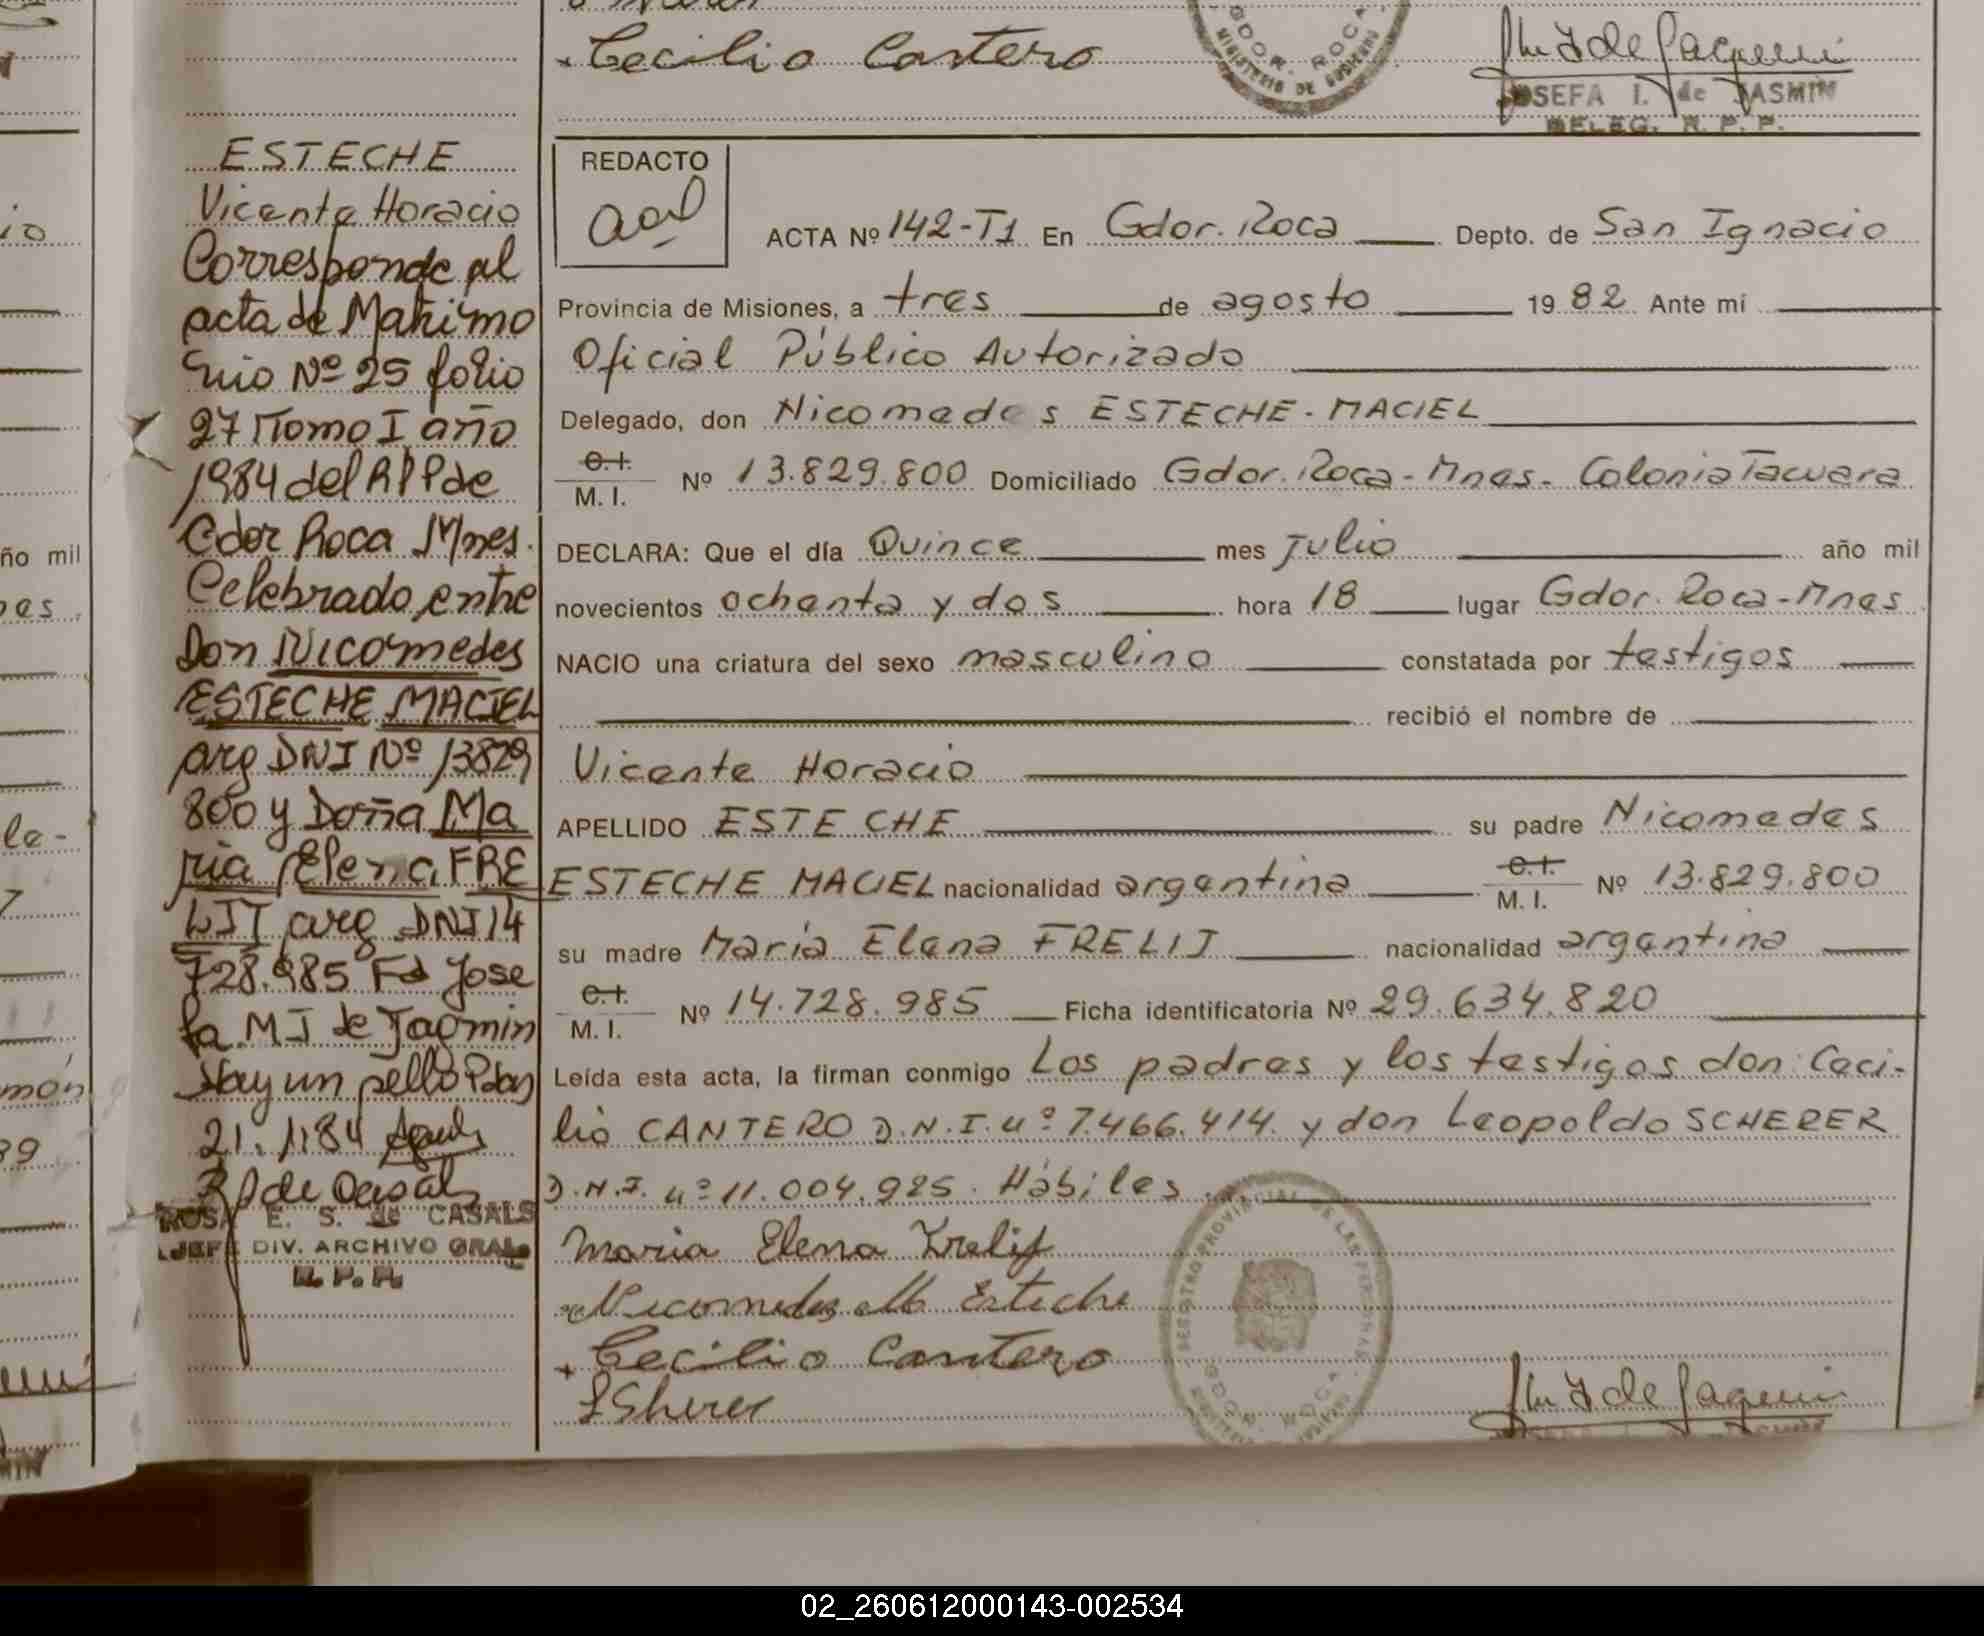 Cecilio Cantero
GDOR. ROCA
MINISTERIO DE GOBIERNO
JOSEFA I. de JASMIN
DELEG. R. P. P.
ESTECHE
Vicente Horacio
Corresponde al
acta de Matrimo
nio Nº 25 folio
27 Tomo I año
1984 del RPP de
Gdor Roca Mnes.
Celebrado entre
Don Nicomedes
ESTECHE MACIEL
arg DNI Nº 13829
800 y Doña Ma
ria Elena FRE
LIJ arg DNI 14
728.985 Fd Jose
fa M I de Jasmin
Hay un sello Pdas
21.1.84
R de Casals
ROSA E. S. de CASALS
JEFE DIV. ARCHIVO GRAL.
R. P. P.
REDACTO
ACTA Nº 142-T1 En Gdor. Roca Depto. de San Ignacio
Provincia de Misiones, a tres de agosto 1982 Ante mí
Oficial Público Autorizado
Delegado, don Nicomedes ESTECHE-MACIEL
C.I.
M. I. Nº 13.829.800 Domiciliado Gdor. Roca-Mnes- Colonia Tacuara
DECLARA: Que el día Quince mes julio año mil
novecientos ochenta y dos hora 18 lugar Gdor. Roca-Mnes
NACIO una criatura del sexo masculino constatada por testigos
recibió el nombre de
Vicente Horacio
APELLIDO ESTECHE su padre Nicomedes
ESTECHE MACIEL nacionalidad argentina C.I. M. I. Nº 13.829.800
su madre María Elena FRELIJ nacionalidad argentina
C.I.
M. I. Nº 14.728.985 Ficha identificatoria Nº 29.634.820
Leída esta acta, la firman conmigo Los padres y los testigos don: Ceci-
lio CANTERO D.N.I. nº 7.466.414. y don Leopoldo SCHERER
D.N.I. nº 11.004.925. Hábiles.
Maria Elena Frelij
Nicomedes M Esteche
Cecilio Cantero
L Sherer
REGISTRO PROVINCIAL DE LAS PERSONAS
GDOR. ROCA
ño mil
le-
món
02_260612000143-002534